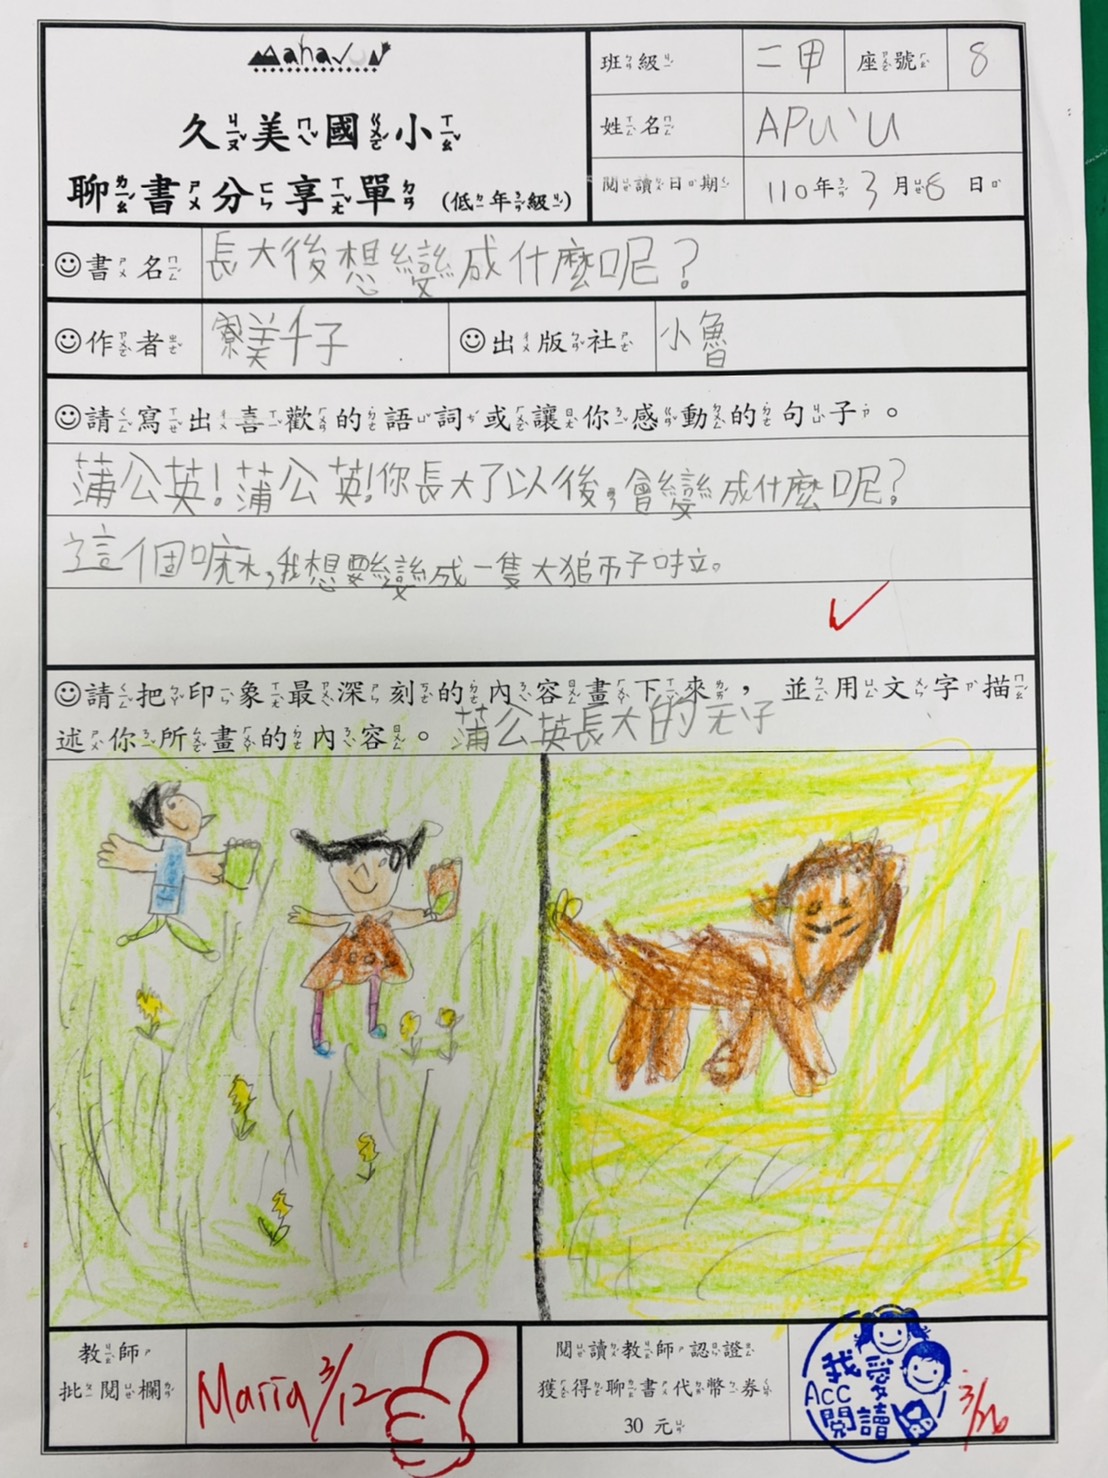 MahavUN
久美國小
聊書分享單(低年級)
班級 二甲 座號 8
姓名 APU'U
閱讀日期 110年3月8日
書名 長大後想變成什麼呢?
作者 寮美千子 出版社 小魯
請寫出喜歡的語詞或讓你感動的句子。
蒲公英!蒲公英!你長大了以後,會變成什麼呢?
這個嘛,我想要變成一隻大獅子啦。
請把印象最深刻的內容畫下來,並用文字描
述你所畫的內容。 蒲公英長大的
教師 批閱欄 Maria 3/12
閱讀教師認證
獲得聊書代幣券
30元
我愛
Acc
閱讀
3/26